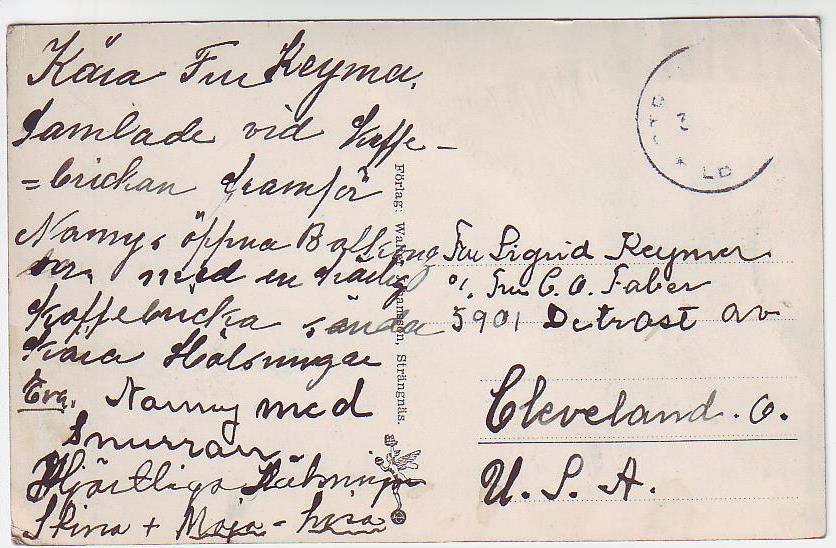 Kära Fru Keymer.
Samlade vid Kaffe-
=brickan framför
Nannys öppna Balkong
med en härlig
Kaffebricka sända
Kära Hälsningar
Eva. Nanny med
Snurran
Hjärtliga Hälsningar
Stina + Maja-Lisa
Förlag: Walter Johansson, Strängnäs.
Fru Sigrid Keymer
c/o. Fru C. O. Faber
5901 Detroit av
Cleveland. O.
U. S. A.